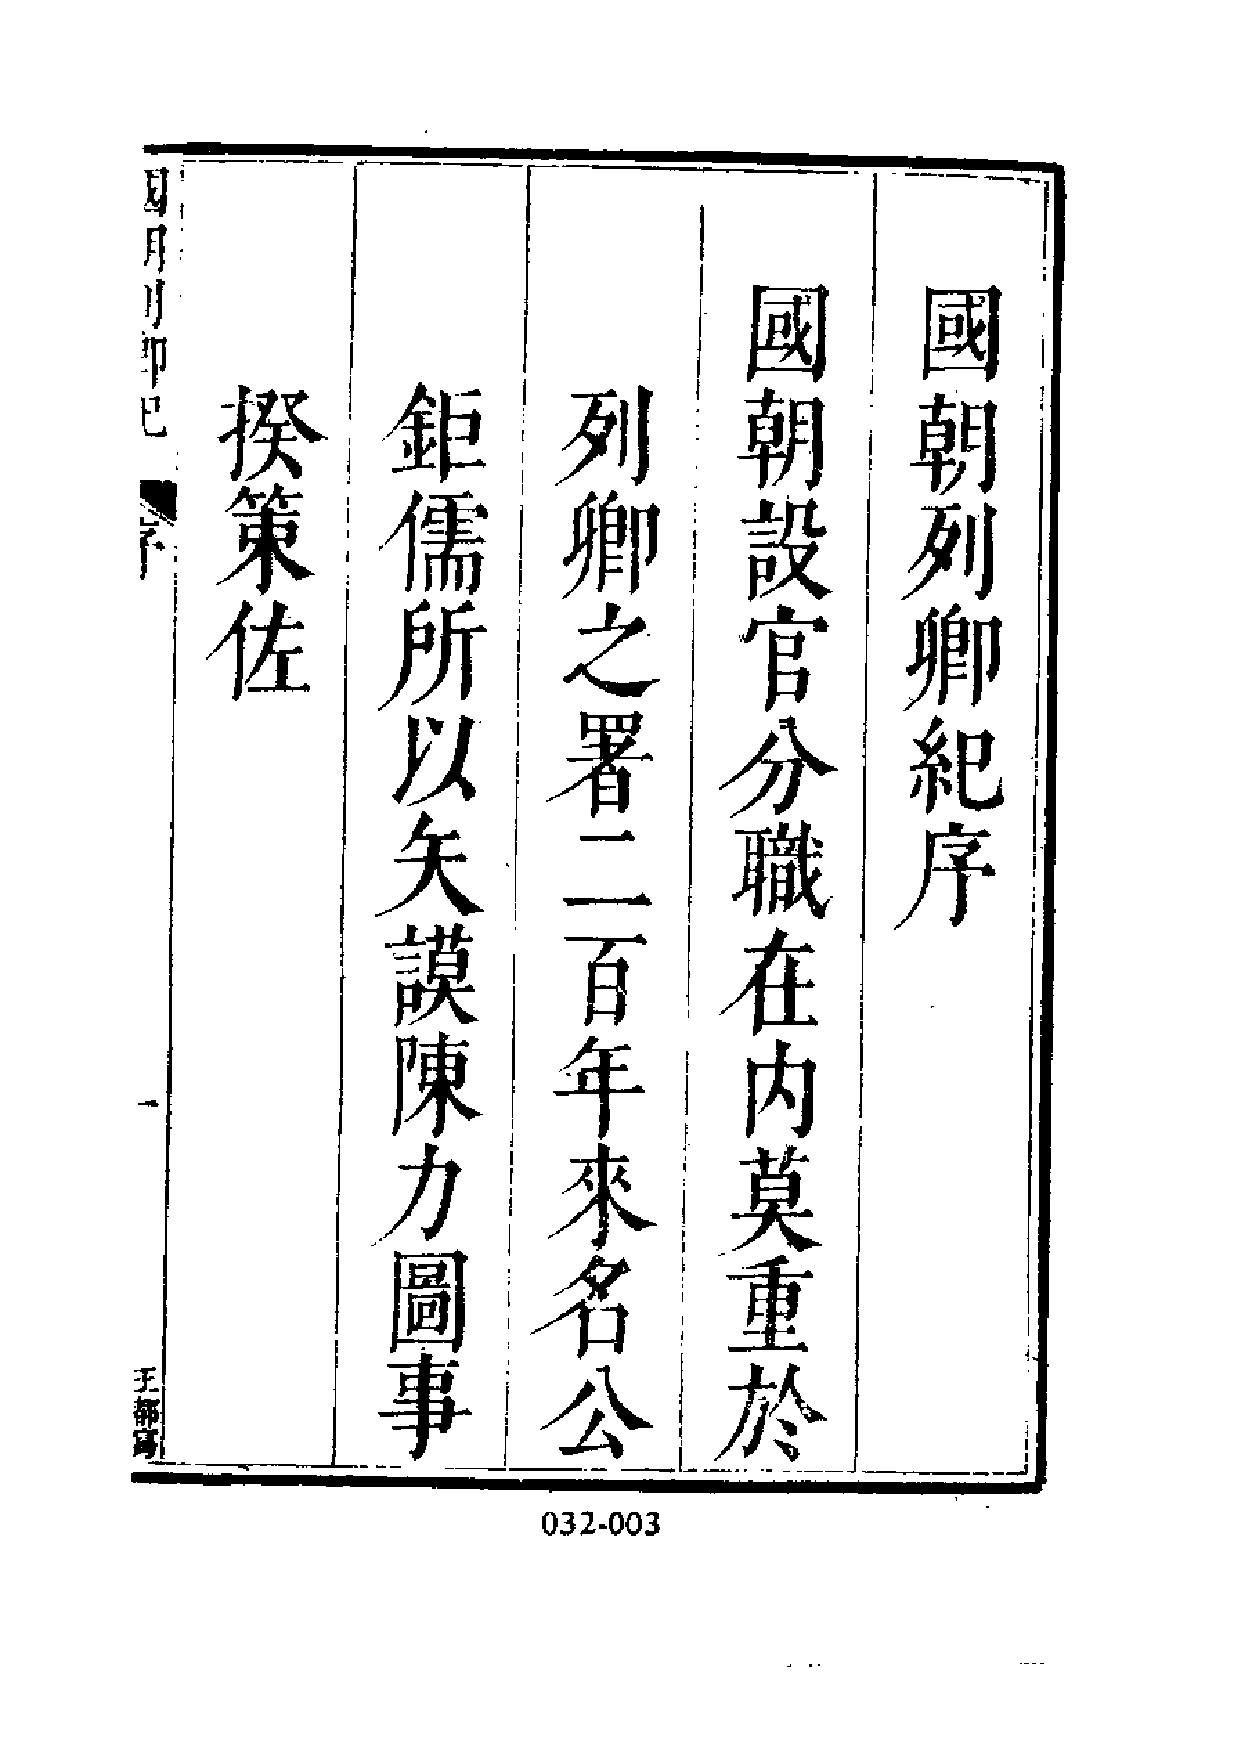 國朝列卿紀序
國朝設官分職在内莫重於
列卿之署二百年來名公
鉅儒所以矢謨陳力圖事
揆策佐
國朝列卿紀
序
一
王都寫
032-003